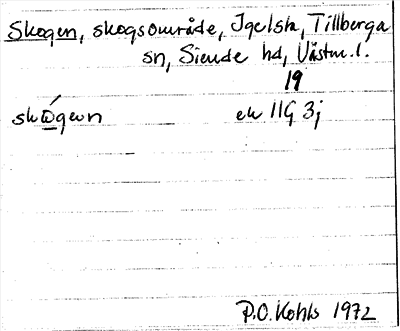 Skogen, skogsområde, Igelsta, Tillberga
sn, Siende hd, Västm. l.
19
skώgωn ek 11G 3j
P.O. Kohls 1972